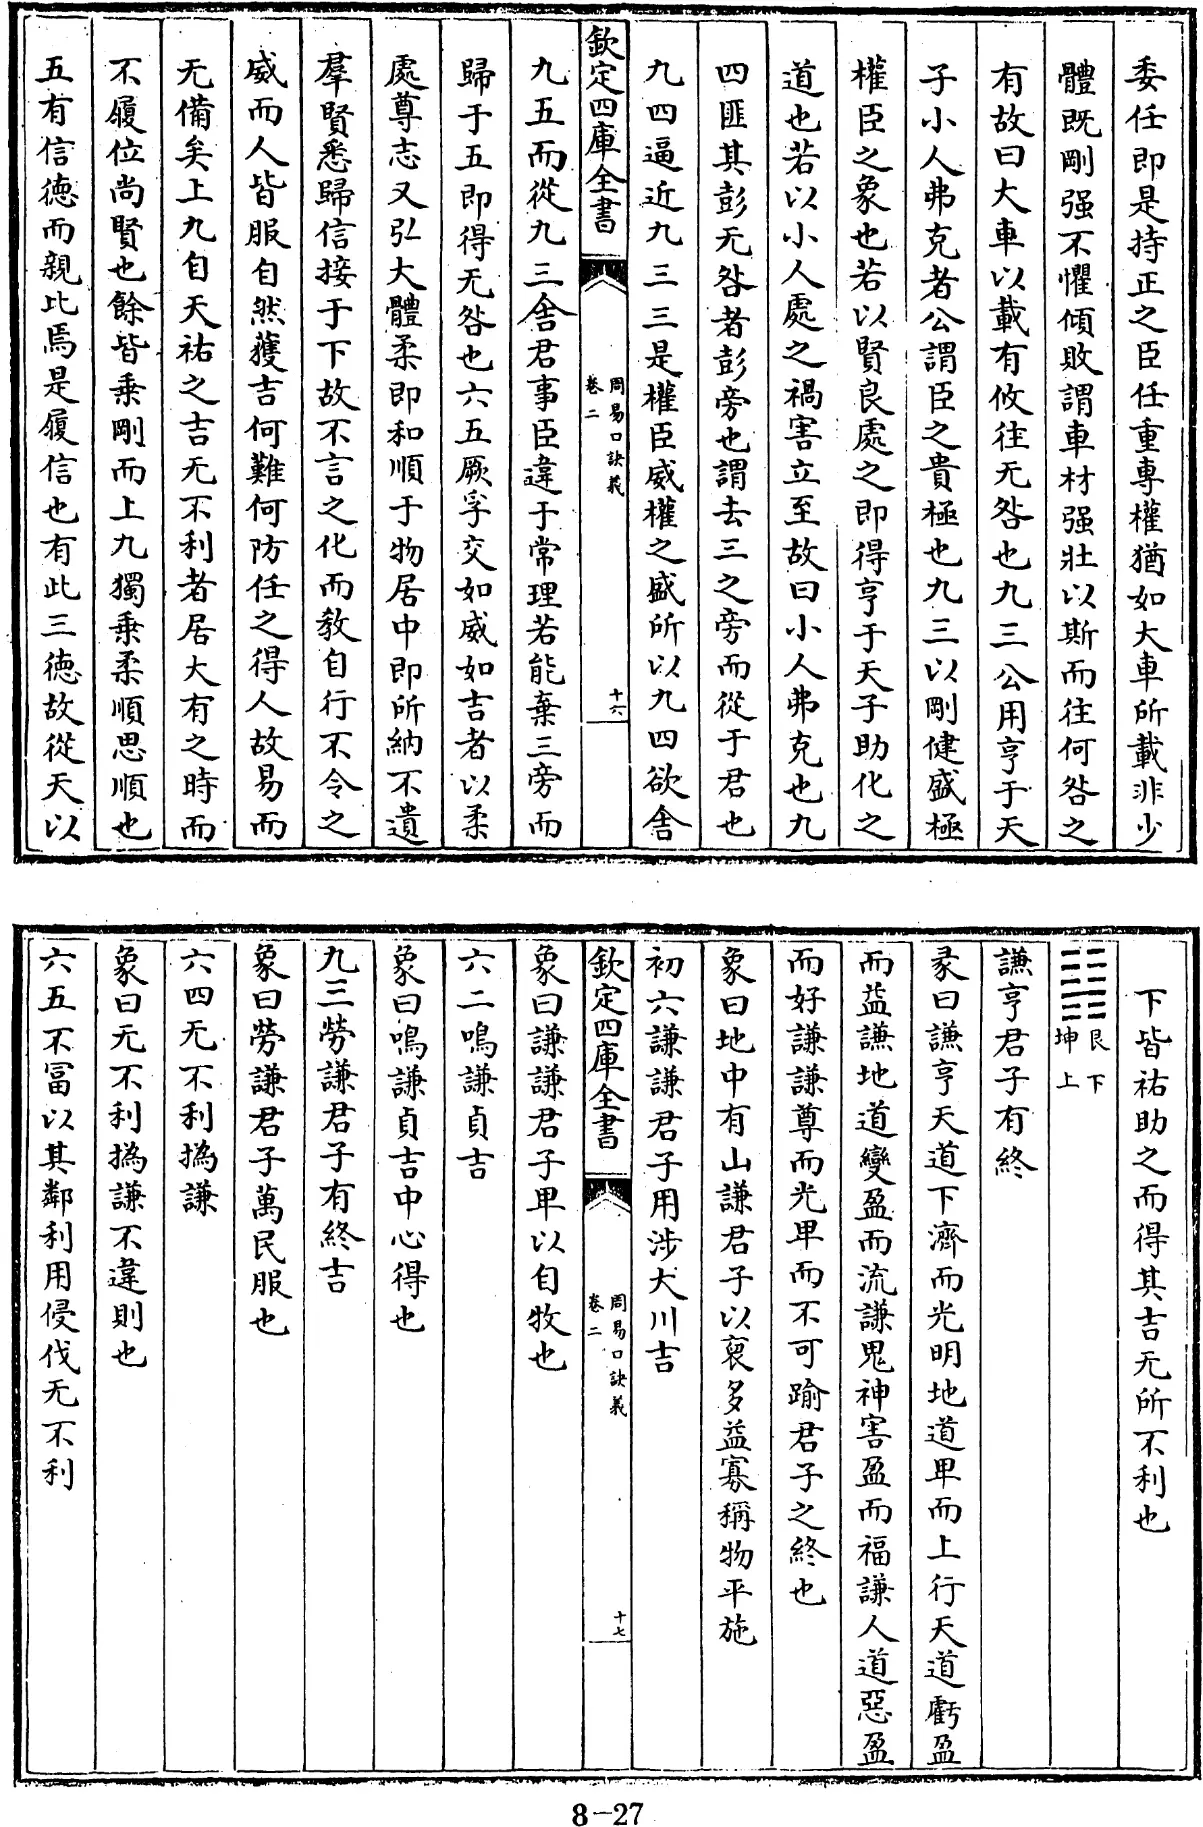 委任即是持正之臣任重專權猶如大車所載非少
體既剛强不懼傾敗謂車材强壯以斯而往何咎之
有故曰大車以載有攸往无咎也九三公用亨于天
子小人弗克者公謂臣之貴極也九三以剛健盛極
權臣之象也若以賢良處之即得亨于天子助化之
道也若以小人處之禍害立至故曰小人弗克也九
四匪其彭无咎者彭旁也謂去三之旁而從于君也
九四逼近九三三是權臣威權之盛所以九四欲舎
欽定四庫全書
周易口訣義
卷二
十六
九五而從九三舍君事臣違于常理若能棄三旁而
歸于五即得无咎也六五厥孚交如威如吉者以柔
處尊志又弘大體柔即和順于物居中即所納不遺
羣賢悉歸信接于下故不言之化而教自行不令之
威而人皆服自然獲吉何難何防任之得人故易而
无備矣上九自天祐之吉无不利者居大有之時而
不履位尚賢也餘皆乗剛而上九獨乗柔順思順也
五有信德而親比焉是履信也有此三德故從天以
下皆祐助之而得其吉无所不利也
艮下
坤上
謙亨君子有終
彖曰謙亨天道下濟而光明地道卑而上行天道虧盈
而益謙地道變盈而流謙鬼神害盈而福謙人道惡盈
而好謙謙尊而光卑而不可踰君子之終也
象曰地中有山謙君子以裒多益寡稱物平施
初六謙謙君子用涉大川吉
欽定四庫全書
周易口訣義
卷二
十七
象曰謙謙君子卑以自牧也
六二鳴謙貞吉
象曰鳴謙貞吉中心得也
九三勞謙君子有終吉
象曰勞謙君子萬民服也
六四无不利撝謙
象曰无不利撝謙不違則也
六五不富以其鄰利用侵伐无不利
8-27